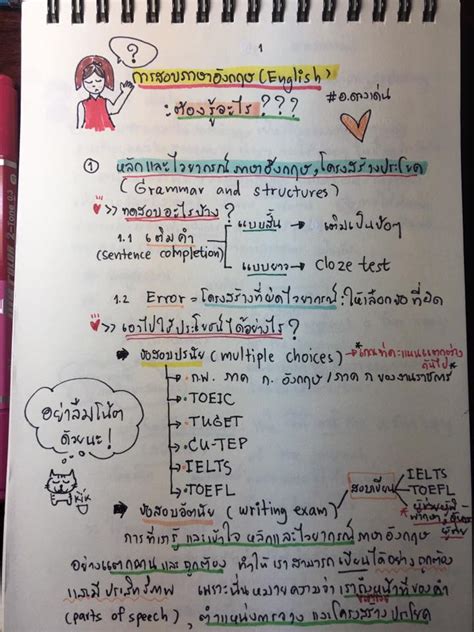 1
?
การสอบภาษาอังกฤษ (English)
: ต้องรู้อะไร ???
#อ.ดวงเด่น
① หลักและไวยากรณ์ภาษาอังกฤษ, โครงสร้างประโยค
(Grammar and structures)
>> ทดสอบอะไรบ้าง ?
1.1 เติมคำ
(sentence completion)
แบบสั้น → เติมเป็นข้อๆ
แบบยาว → Cloze test
1.2 Error = โครงสร้างที่ผิดไวยากรณ์ : ให้เลือกข้อที่ผิด
>> เอาไปใช้ประโยชน์ได้อย่างไร ?
ข้อสอบปรนัย (multiple choices) → *เกณฑ์คะแนนแตกต่าง
กันไป*
ก.พ. ภาค ก. อังกฤษ / ภาค ก ของงานราชการ
TOEIC
TUGET
CU-TEP
IELTS
TOEFL
อย่าลืมโน้ต
ด้วยนะ!
ข้อสอบอัตนัย (writing exam)
สอบเขียน
IELTS
TOEFL
การที่เรารู้ และเข้าใจ หลักและไวยากรณ์ ภาษาอังกฤษ
อย่างแตกฉาน และ ถูกต้อง ทำให้ เราสามารถ เขียนได้อย่าง ถูกต้อง
และมี ประสิทธิภาพ เพราะนั่น หมายความว่า เรารู้ถึงหน้าที่ของคำ
(parts of speech), ตำแหน่งการวาง และโครงสร้าง ประโยค